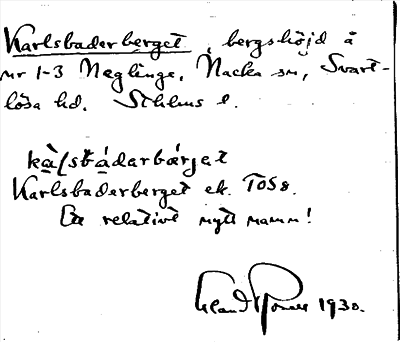 Karlsbaderberget, bergshöjd å
nr 1-3 Neglinge, Nacka sn, Svart-
lösa hd. Sthlms l.
kàlsbádarbærjet
Karlsbaderberget ek. TOS8.
Ett relativt nytt namn!
1930.